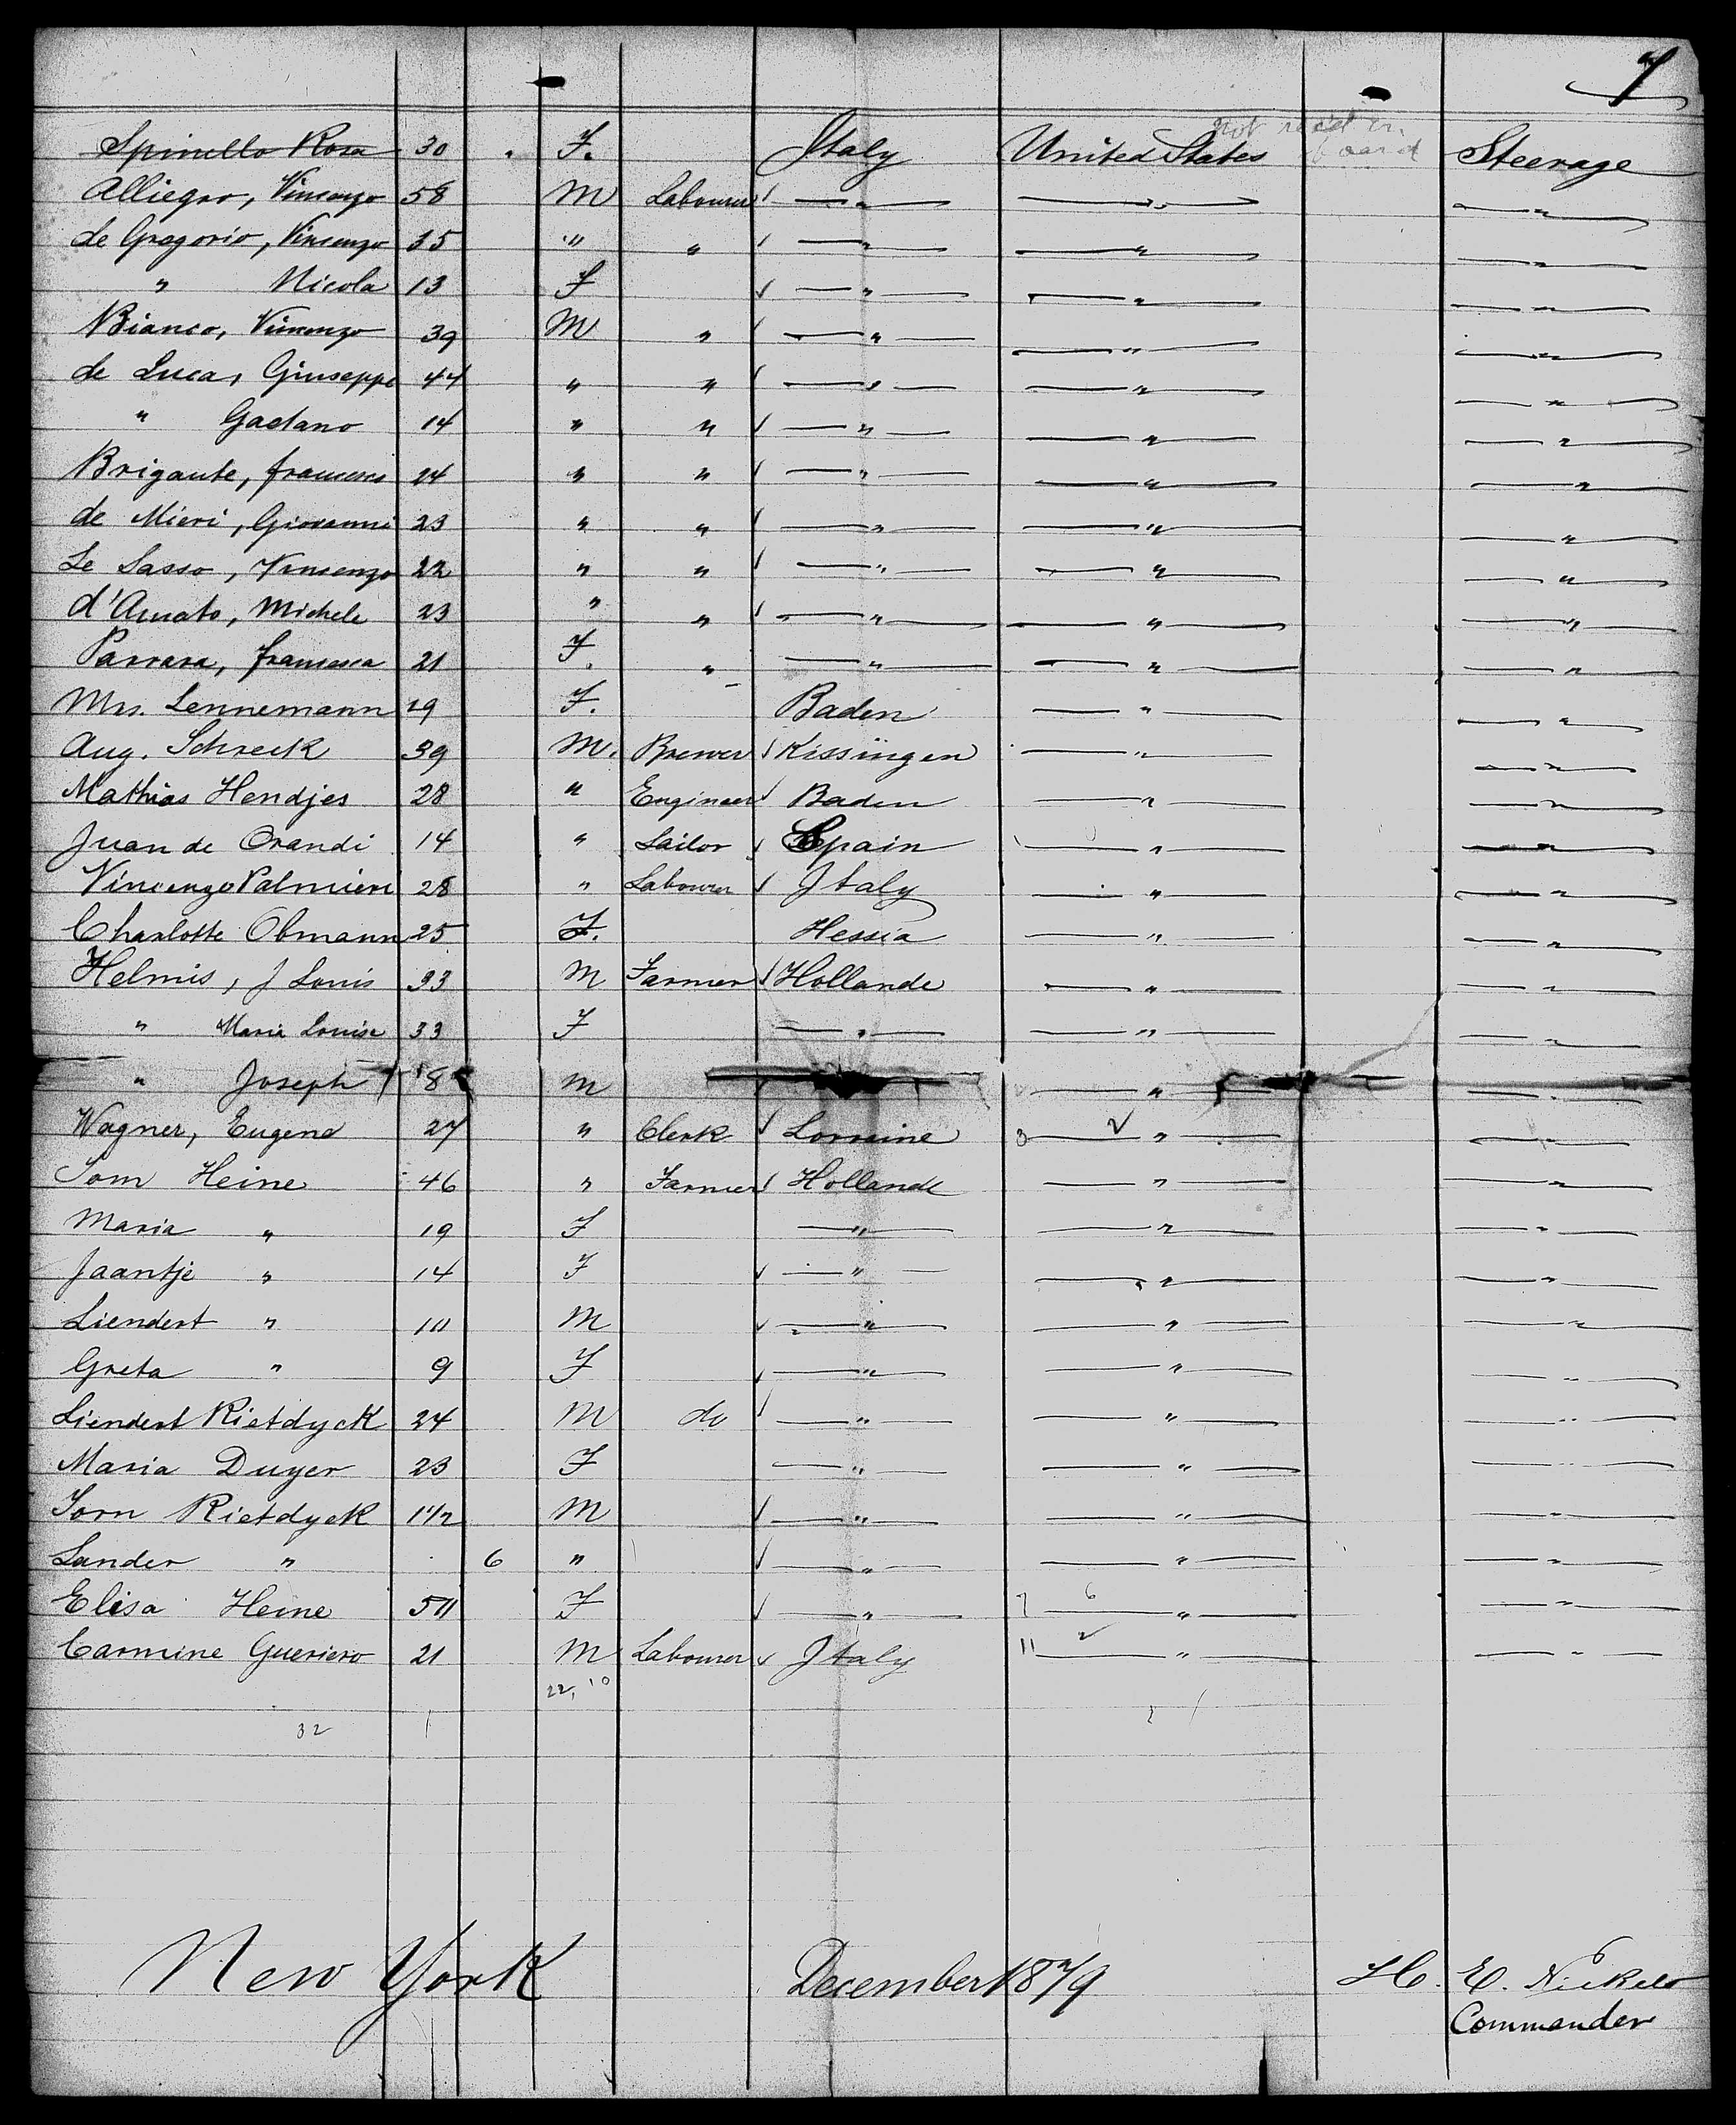 7
not rec'd on board
Spinello Rosa 30 F. Italy United States Steerage
Alliegro, Vincenzo 58 M Labourer ✓ — " — — " — — " —
de Gregorio, Vincenzo 35 " " ✓ — " — — " — — " —
" Nicola 13 F ✓ — " — — " — — " —
Bianco, Vincenzo 39 M " ✓ — " — — " — — " —
de Luca, Giuseppe 44 " " ✓ — " — — " — — " —
" Gaetano 14 " " ✓ — " — — " — — " —
Brigante, francesco 24 " " ✓ — " — — " — — " —
de Mieri, Giovanni 23 " " ✓ — " — — " — — " —
Lo Sasso, Vincenzo 22 " " ✓ — " — — " — — " —
d'Amato, Michele 23 " " ✓ — " — — " — — " —
francesca 21 F. " — " — — " — — " —
Mrs. Lennemann 29 F. Baden — " — — " —
Aug. Schreck 39 M. Brewer ✓ Kissingen — " — — " —
Mathias Hendjes 28 " Engineer ✓ Baden — " — — " —
Juan de Orandi 14 " Sailor ✓ Spain — " — — " —
Vincenzo Palmieri 28 " Labourer ✓ Italy — " — — " —
Charlotte Obmann 25 F. Hessia — " — — " —
Helmis, J Louis 33 M Farmer ✓ Hollande — " — — " —
" Maria Louise 33 F — " — — " — — " —
" Joseph 8 M — " — — " —
Wagner, Eugene 27 " Clerk ✓ Lorraine 3 — " — — " —
Heine 46 " Farmer ✓ Hollande — " — — " —
Maria " 19 F — " — — " — — " —
Jaantje " 14 F ✓ — " — — " — — " —
Liendert " 11 M ✓ — " — — " — — " —
Greta " 9 F ✓ — " — — " — — " —
Liendert Rietdyck 24 M do ✓ — " — — " — — " —
Maria Duyer 23 F — " — — " — — " —
Rietdyck 1 1/2 M ✓ — " — — " — — " —
Lander " 6 " ✓ — " — — " — — " —
Elisa Heine F ✓ — " — 7 6 — " — — " —
Carmine Gueriero 21 M Labourer ✓ Italy 11 2 — " — — " —
22, 10
32 1
New York December 1879 H. E. Nickels
Commander